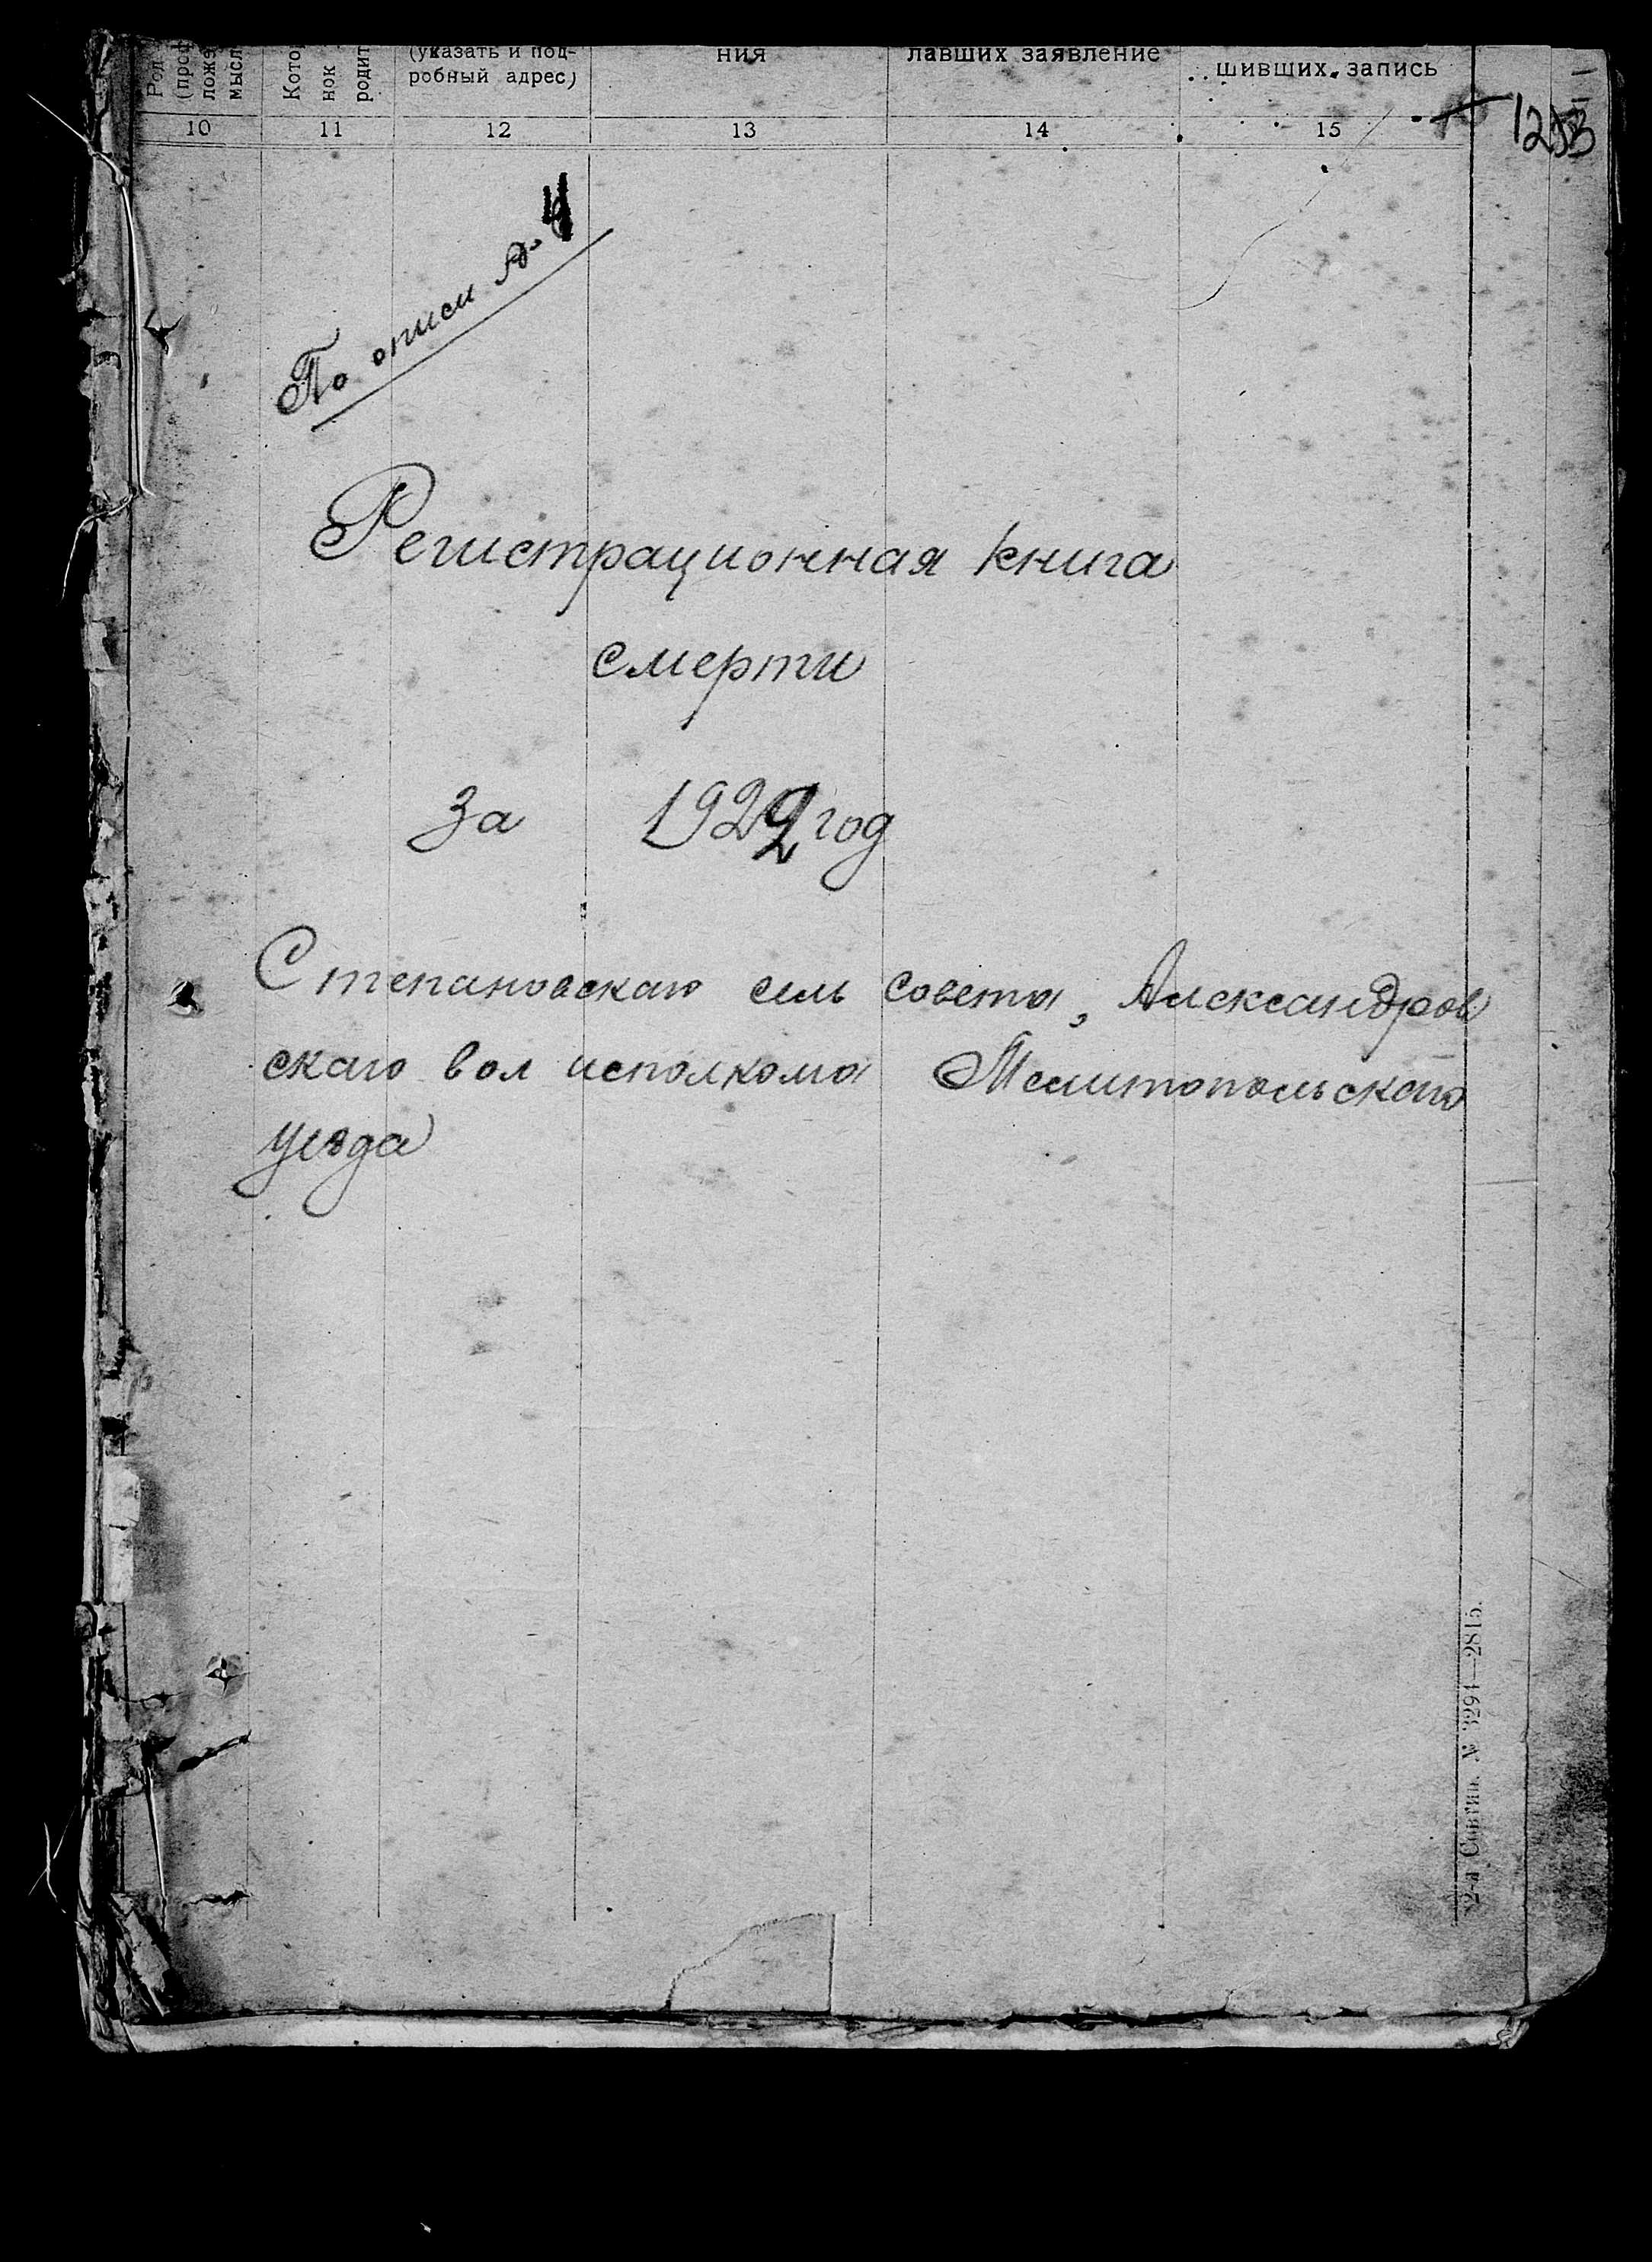 (указать и под-
робный адрес)
ния
лавших заявление
шивших запись
10 11 12 13 14 15
По описи №
Регистрационная книга
смерти
за 1922 год
Степановскаго сель совета, Александров
скаго вол исполкома Мелитопольскаго
уезда
2-я Совтип. № 3294—2815.